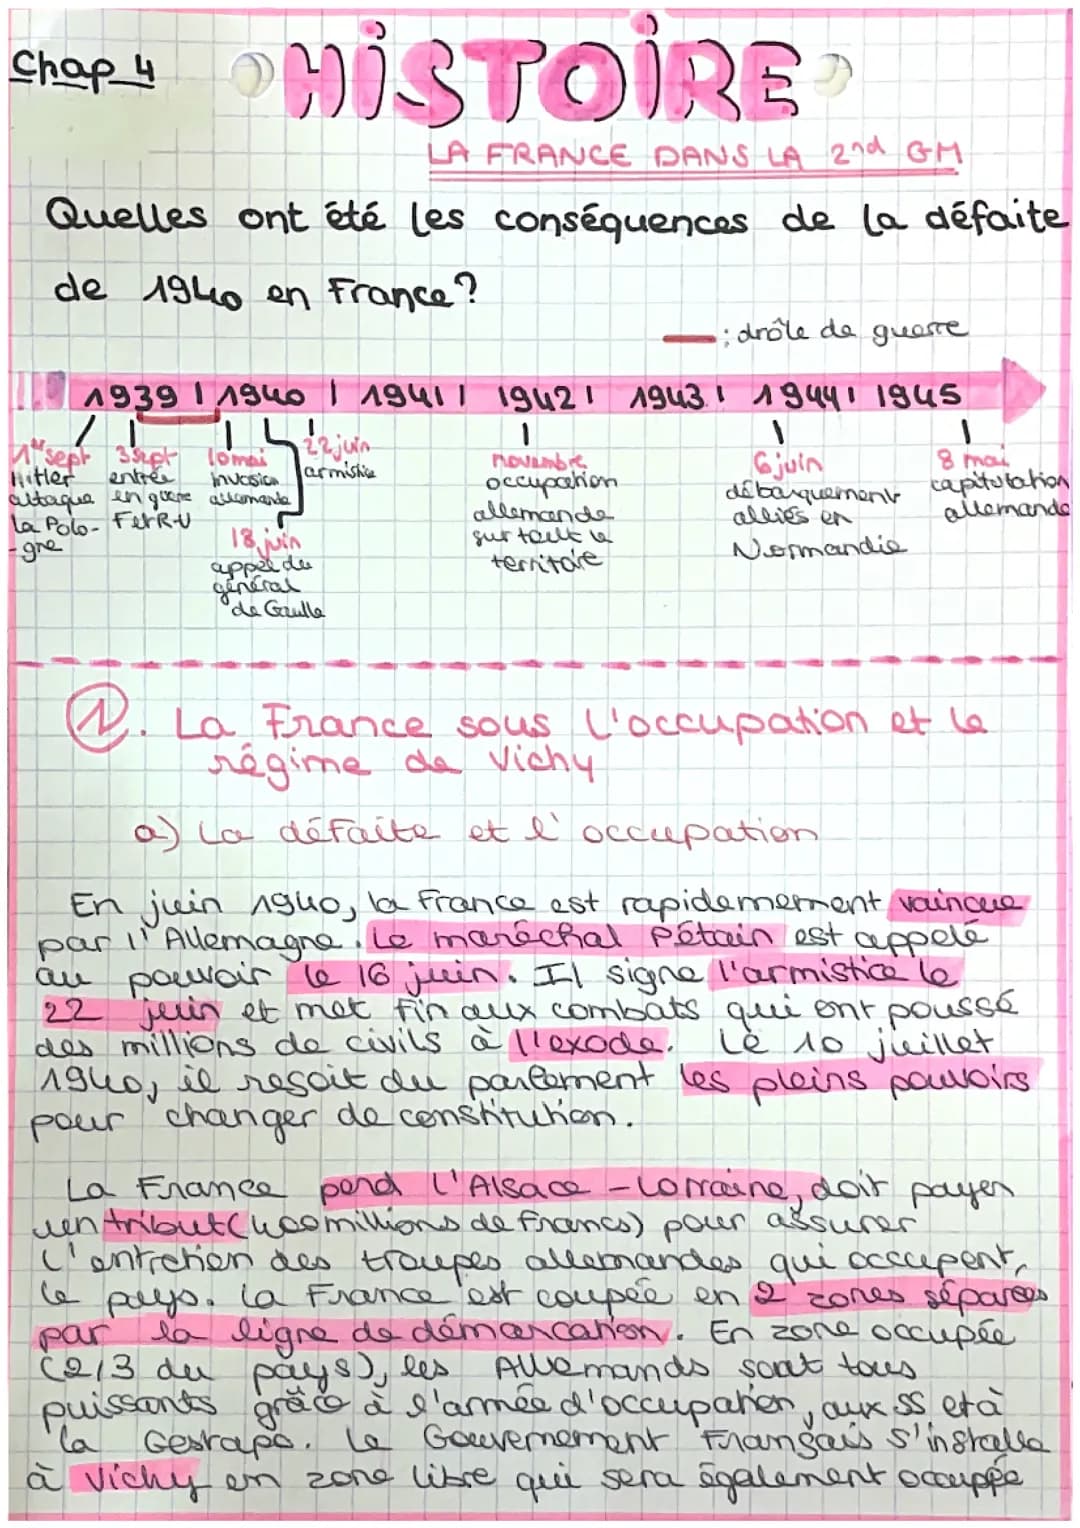 Chap 4
HISTOIRE
LA FRANCE DANS LA 2nd GM
Quelles ont été les conséquences de la défaite
de 1940 en France?
: drôle de guerre
1939 | 1940 | 1941 | 1942 | 1943 | 1944 | 1945
1er sept
Hitler
attaque
la Polo-
-gne
3 sept
entrée
en guerre
F et R-U
10 mai
invasion
allemande
18 juin
appel du
général
de Gaulle
22 juin
armistice
novembre
occupation
allemande
sur tout le
territoire
6 juin
débarquement
alliés en
Normandie
8 mai
capitulation
allemande
1. La France sous l'occupation et le
régime de Vichy
a) La défaite et l'occupation
En juin 1940, la France est rapidemement vaincue
par l'Allemagne. Le maréchal Pétain est appelé
au pouvoir le 16 juin. Il signe l'armistice le
22 juin et met fin aux combats qui ont poussé
des millions de civils à l'exode. Le 10 juillet
1940, il resoit du parlement les pleins pouvoirs
pour changer de constitution.
La France perd l'Alsace-Lorraine, doit payer
un tribut (400 millions de francs) pour assurer
l'entretien des troupes allemandes qui occupent
le pays. La France est coupée en 2 zones séparées
par la ligne de démarcation. En zone occupée
(2/3 du pays), les Allemands sont tous
puissants grâce à l'armée d'occupation, aux SS et à
la Gestapo. Le Gouvernement Français s'installe
à Vichy en zone libre qui sera également occuppée